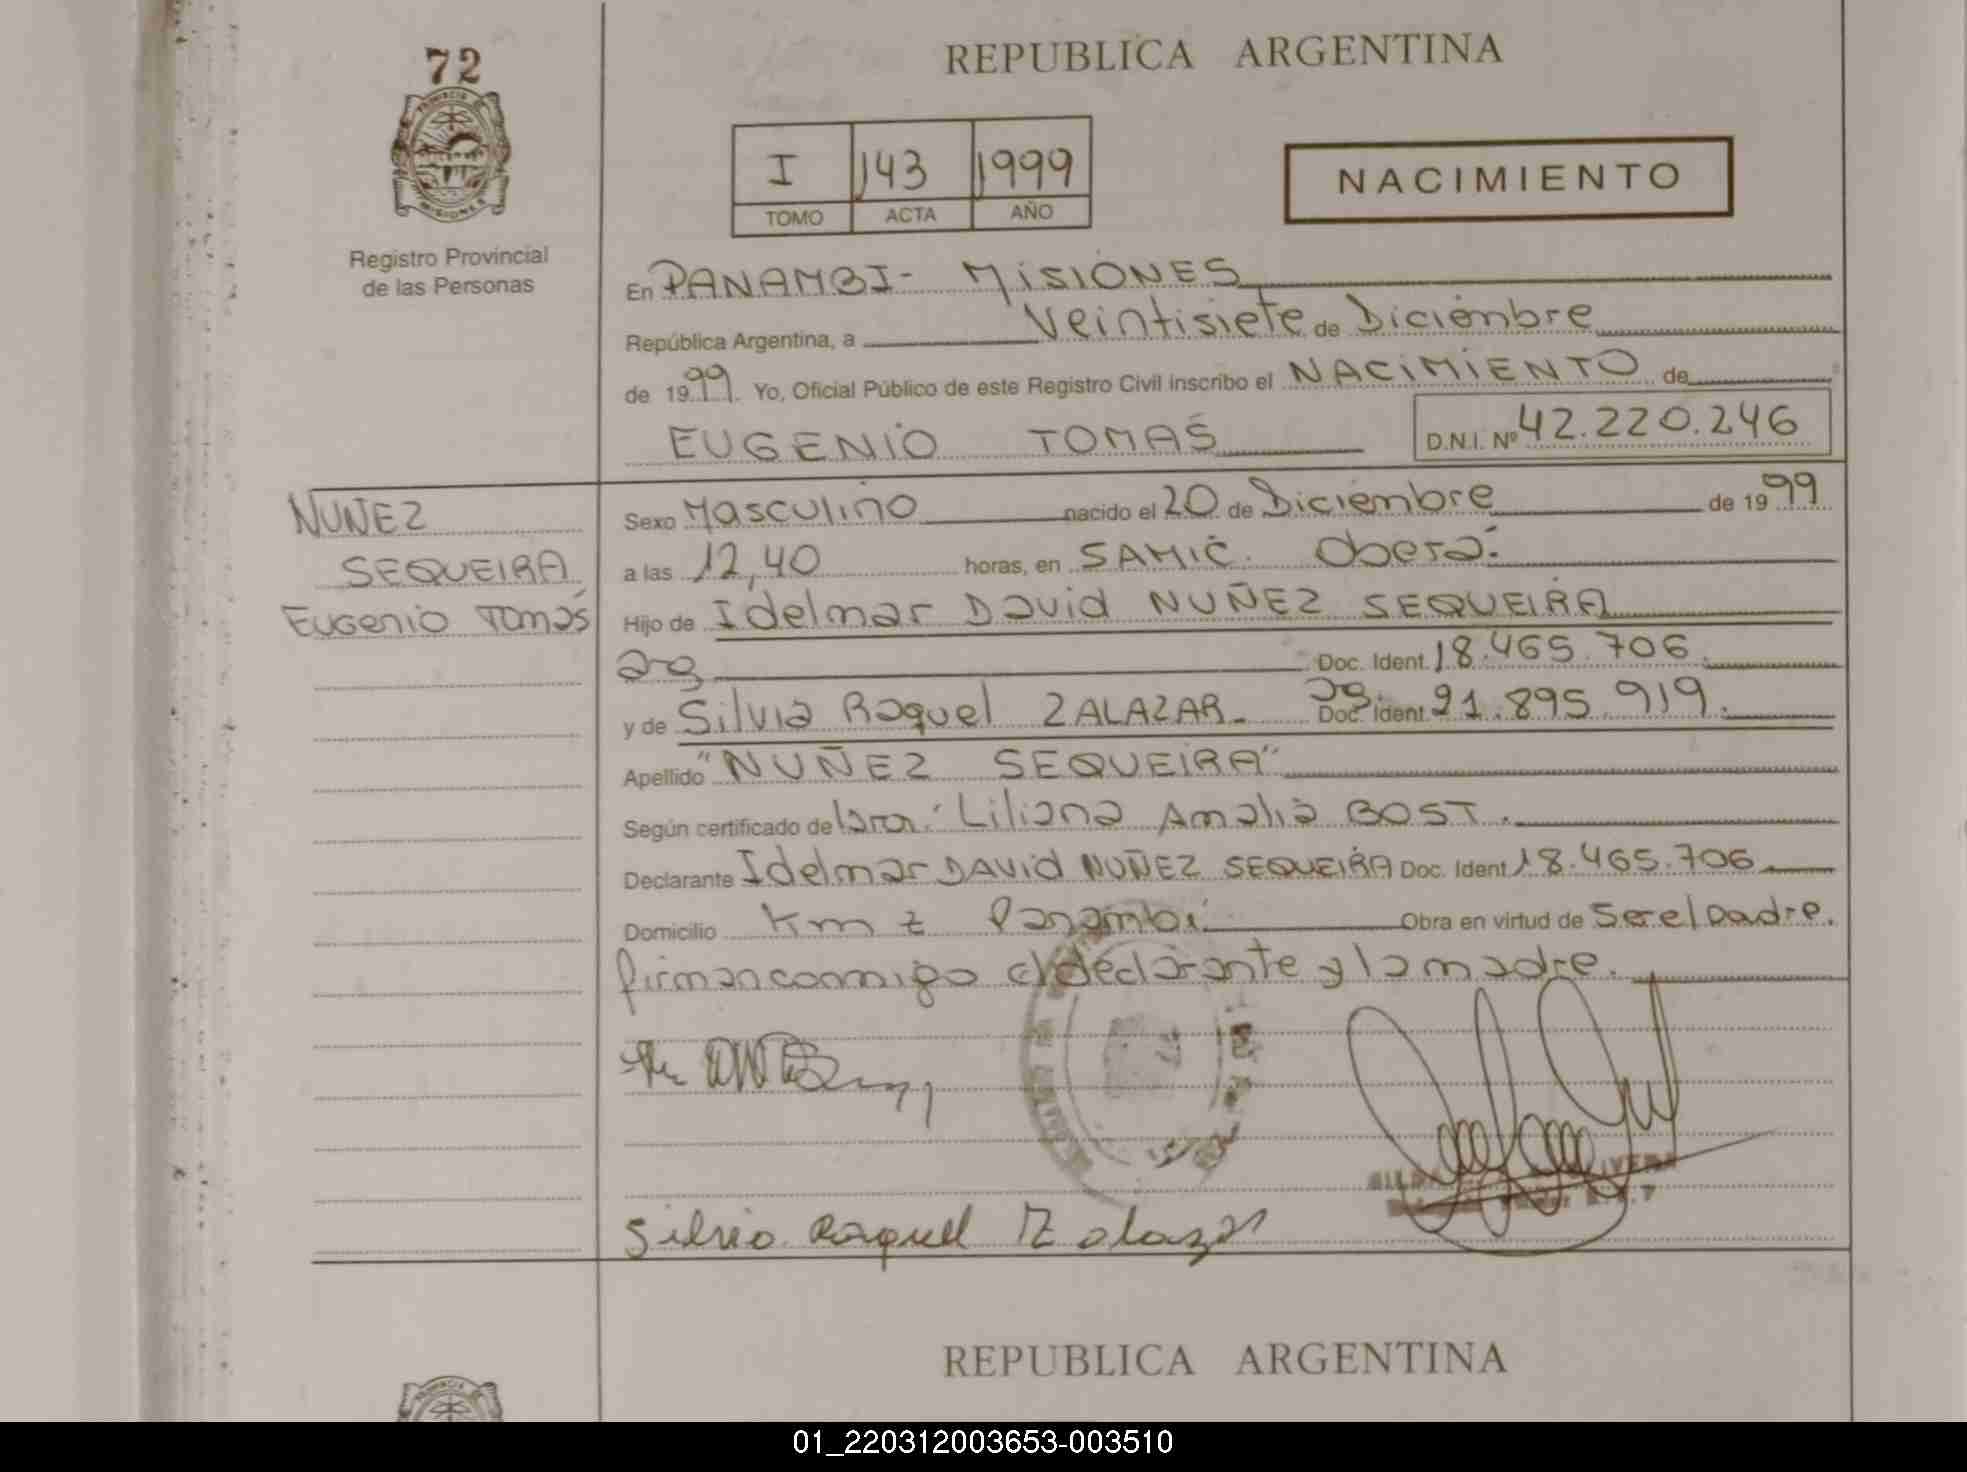 72
PROVINCIA DE
MISIONES
Registro Provincial
de las Personas
REPUBLICA ARGENTINA
I 143 1999
TOMO ACTA AÑO
NACIMIENTO
En PANAMBI- MISIONES
República Argentina, a Veintisiete de Diciembre
de 1999. Yo, Oficial Público de este Registro Civil inscribo el NACIMIENTO de
EUGENIO TOMAS D.N.I. Nº 42.220.246
NUÑEZ
SEQUEIRA
Eugenio Tomás
Sexo Masculino nacido el 20 de Diciembre de 1999
a las 12,40 horas, en SAMIC. Oberá.
Hijo de Idelmar David NUÑEZ SEQUEIRA
arg Doc. Ident. 18.465.706.
y de Silvia Raquel ZALAZAR- arg. Doc. Ident. 21.895.919.
Apellido "NUÑEZ SEQUEIRA"
Según certificado de Liliana Amalia BOST.
Declarante Idelmar DAVID NUÑEZ SEQUEIRA Doc. Ident. 18.465.706.
Domicilio Km 2 Panambí Obra en virtud de Ser el padre.
firman conmigo el declarante y la madre.
Silvia Raquel Zalazar
REPUBLICA ARGENTINA
PROVINCIA DE
01_220312003653-003510